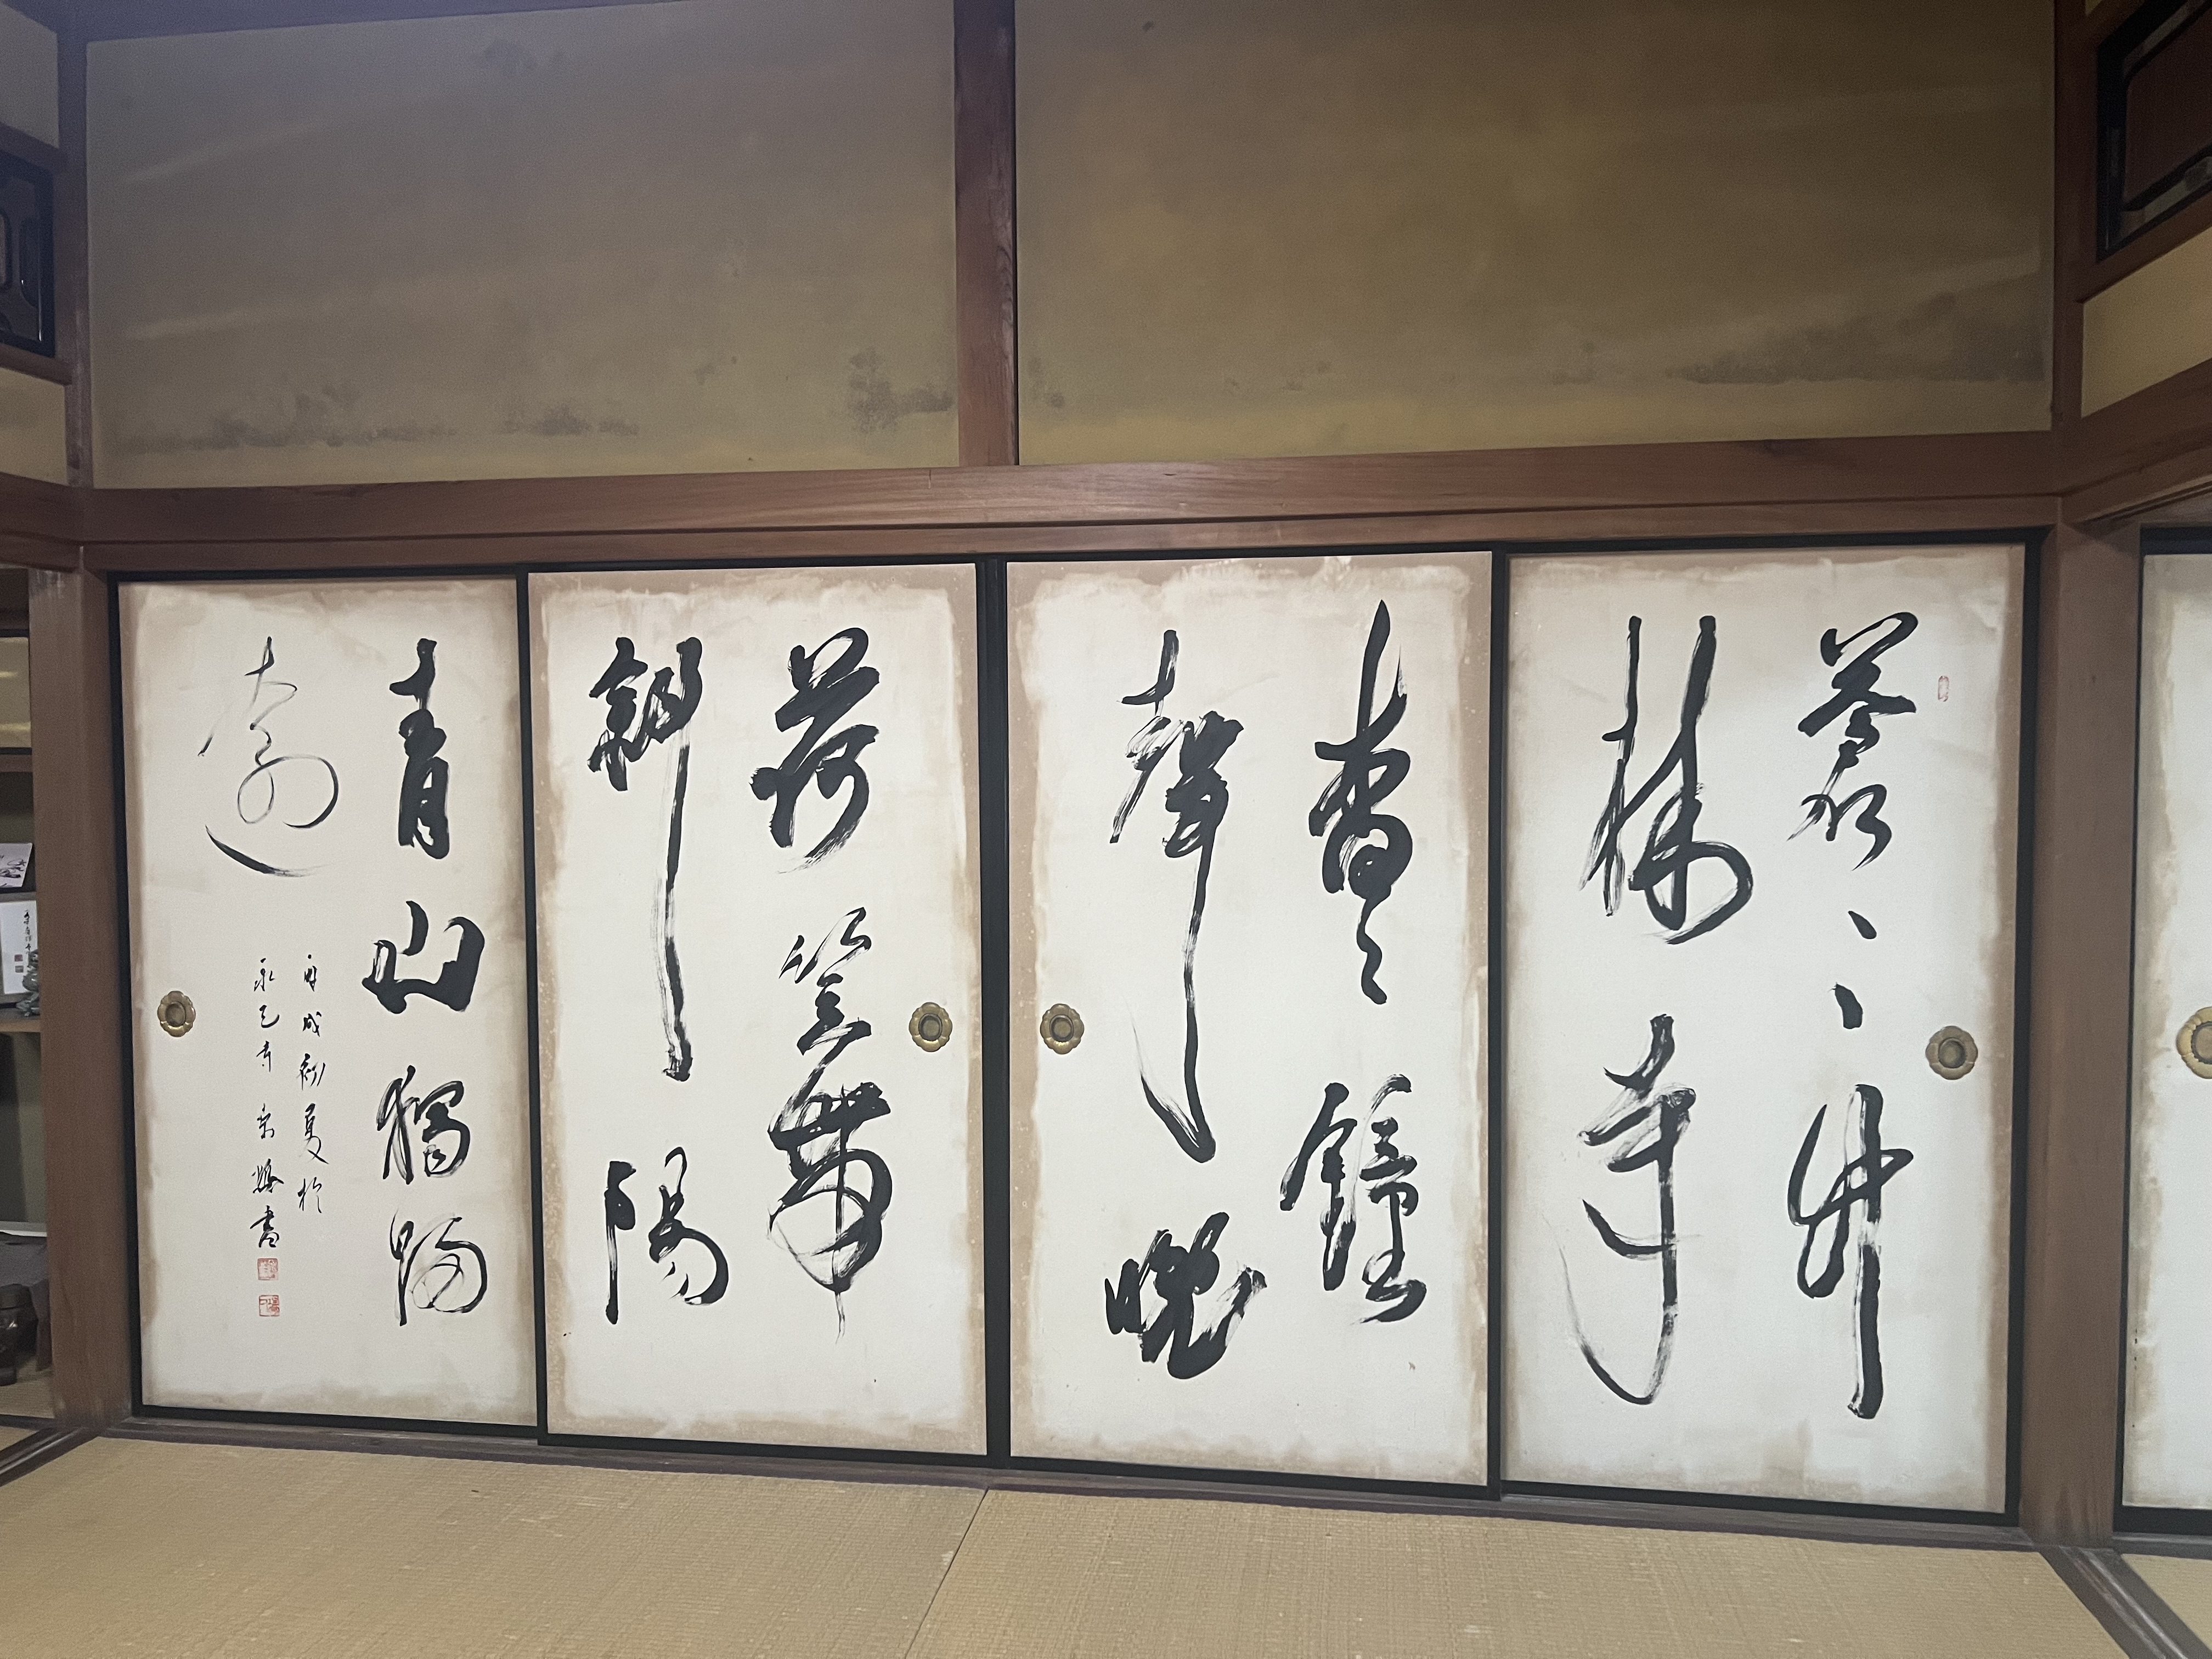 蒼々竹
林寺
杳々鐘
聲晚
荷笠帶
斜陽
青山獨歸
遠
戌初夏於
寺 書